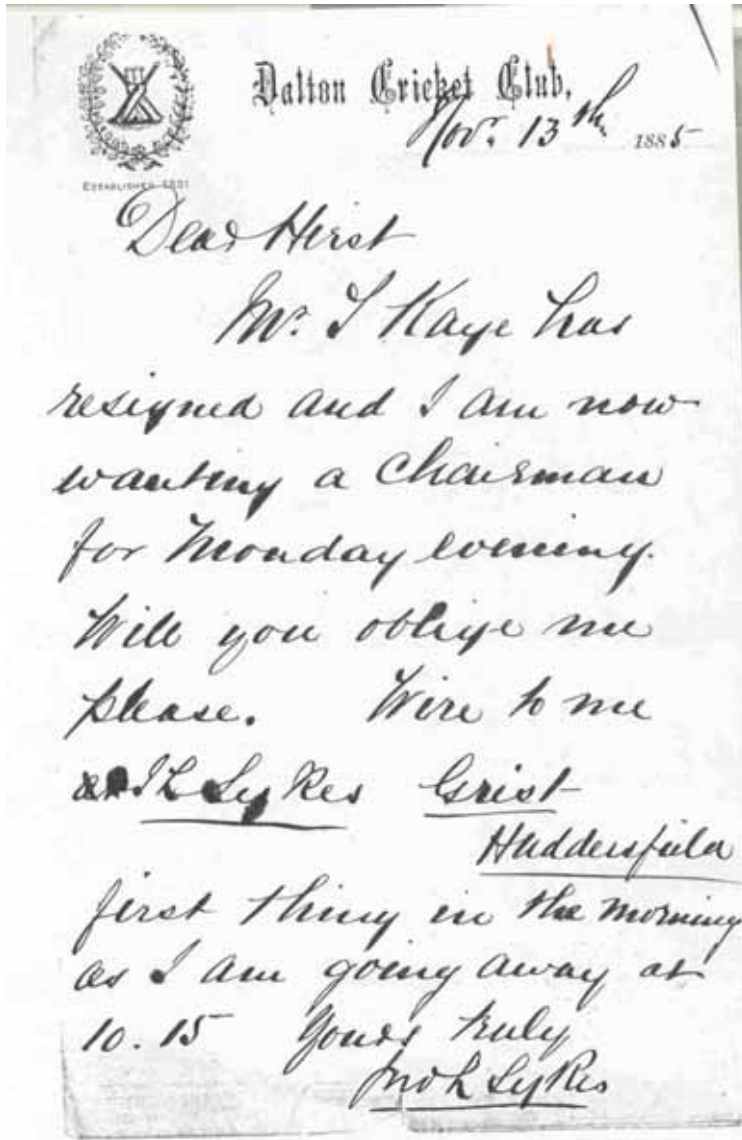 Dalton Cricket Club,
Novr. 13th 1885
ESTABLISHED
Dear Hirst
Mr. J Kaye has
resigned and I am now
wanting a Chairman
for Monday evening.
Will you oblige me
please. Wire to me
J L Sykes Grist
Huddersfield
first thing in the morning
as I am going away at
10.15 Yours truly
Jno L Sykes